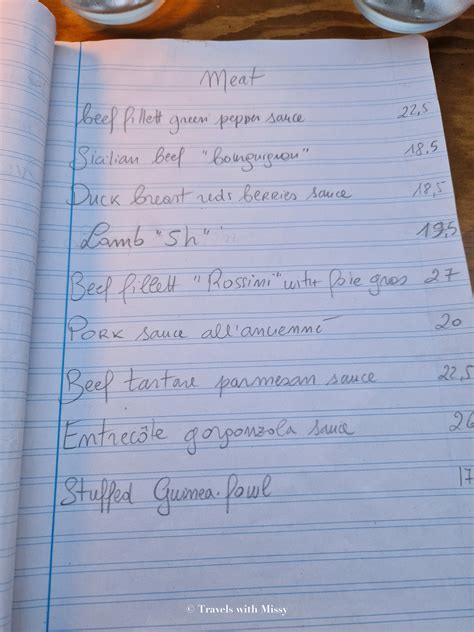 Meat
beef fillett green pepper sauce 22,5
Sicilian beef "bourguignon" 18,5
Duck breast reds berries sauce 18,5
Lamb "5h" 19,5
Beef fillett "Rossini" with foie gras 27
Pork sauce all'ancienne 20
Beef tartare parmesan sauce 22,5
Entrecôte gorgonzola sauce 26
Stuffed Guinea.fowl 17
© Travels with Missy